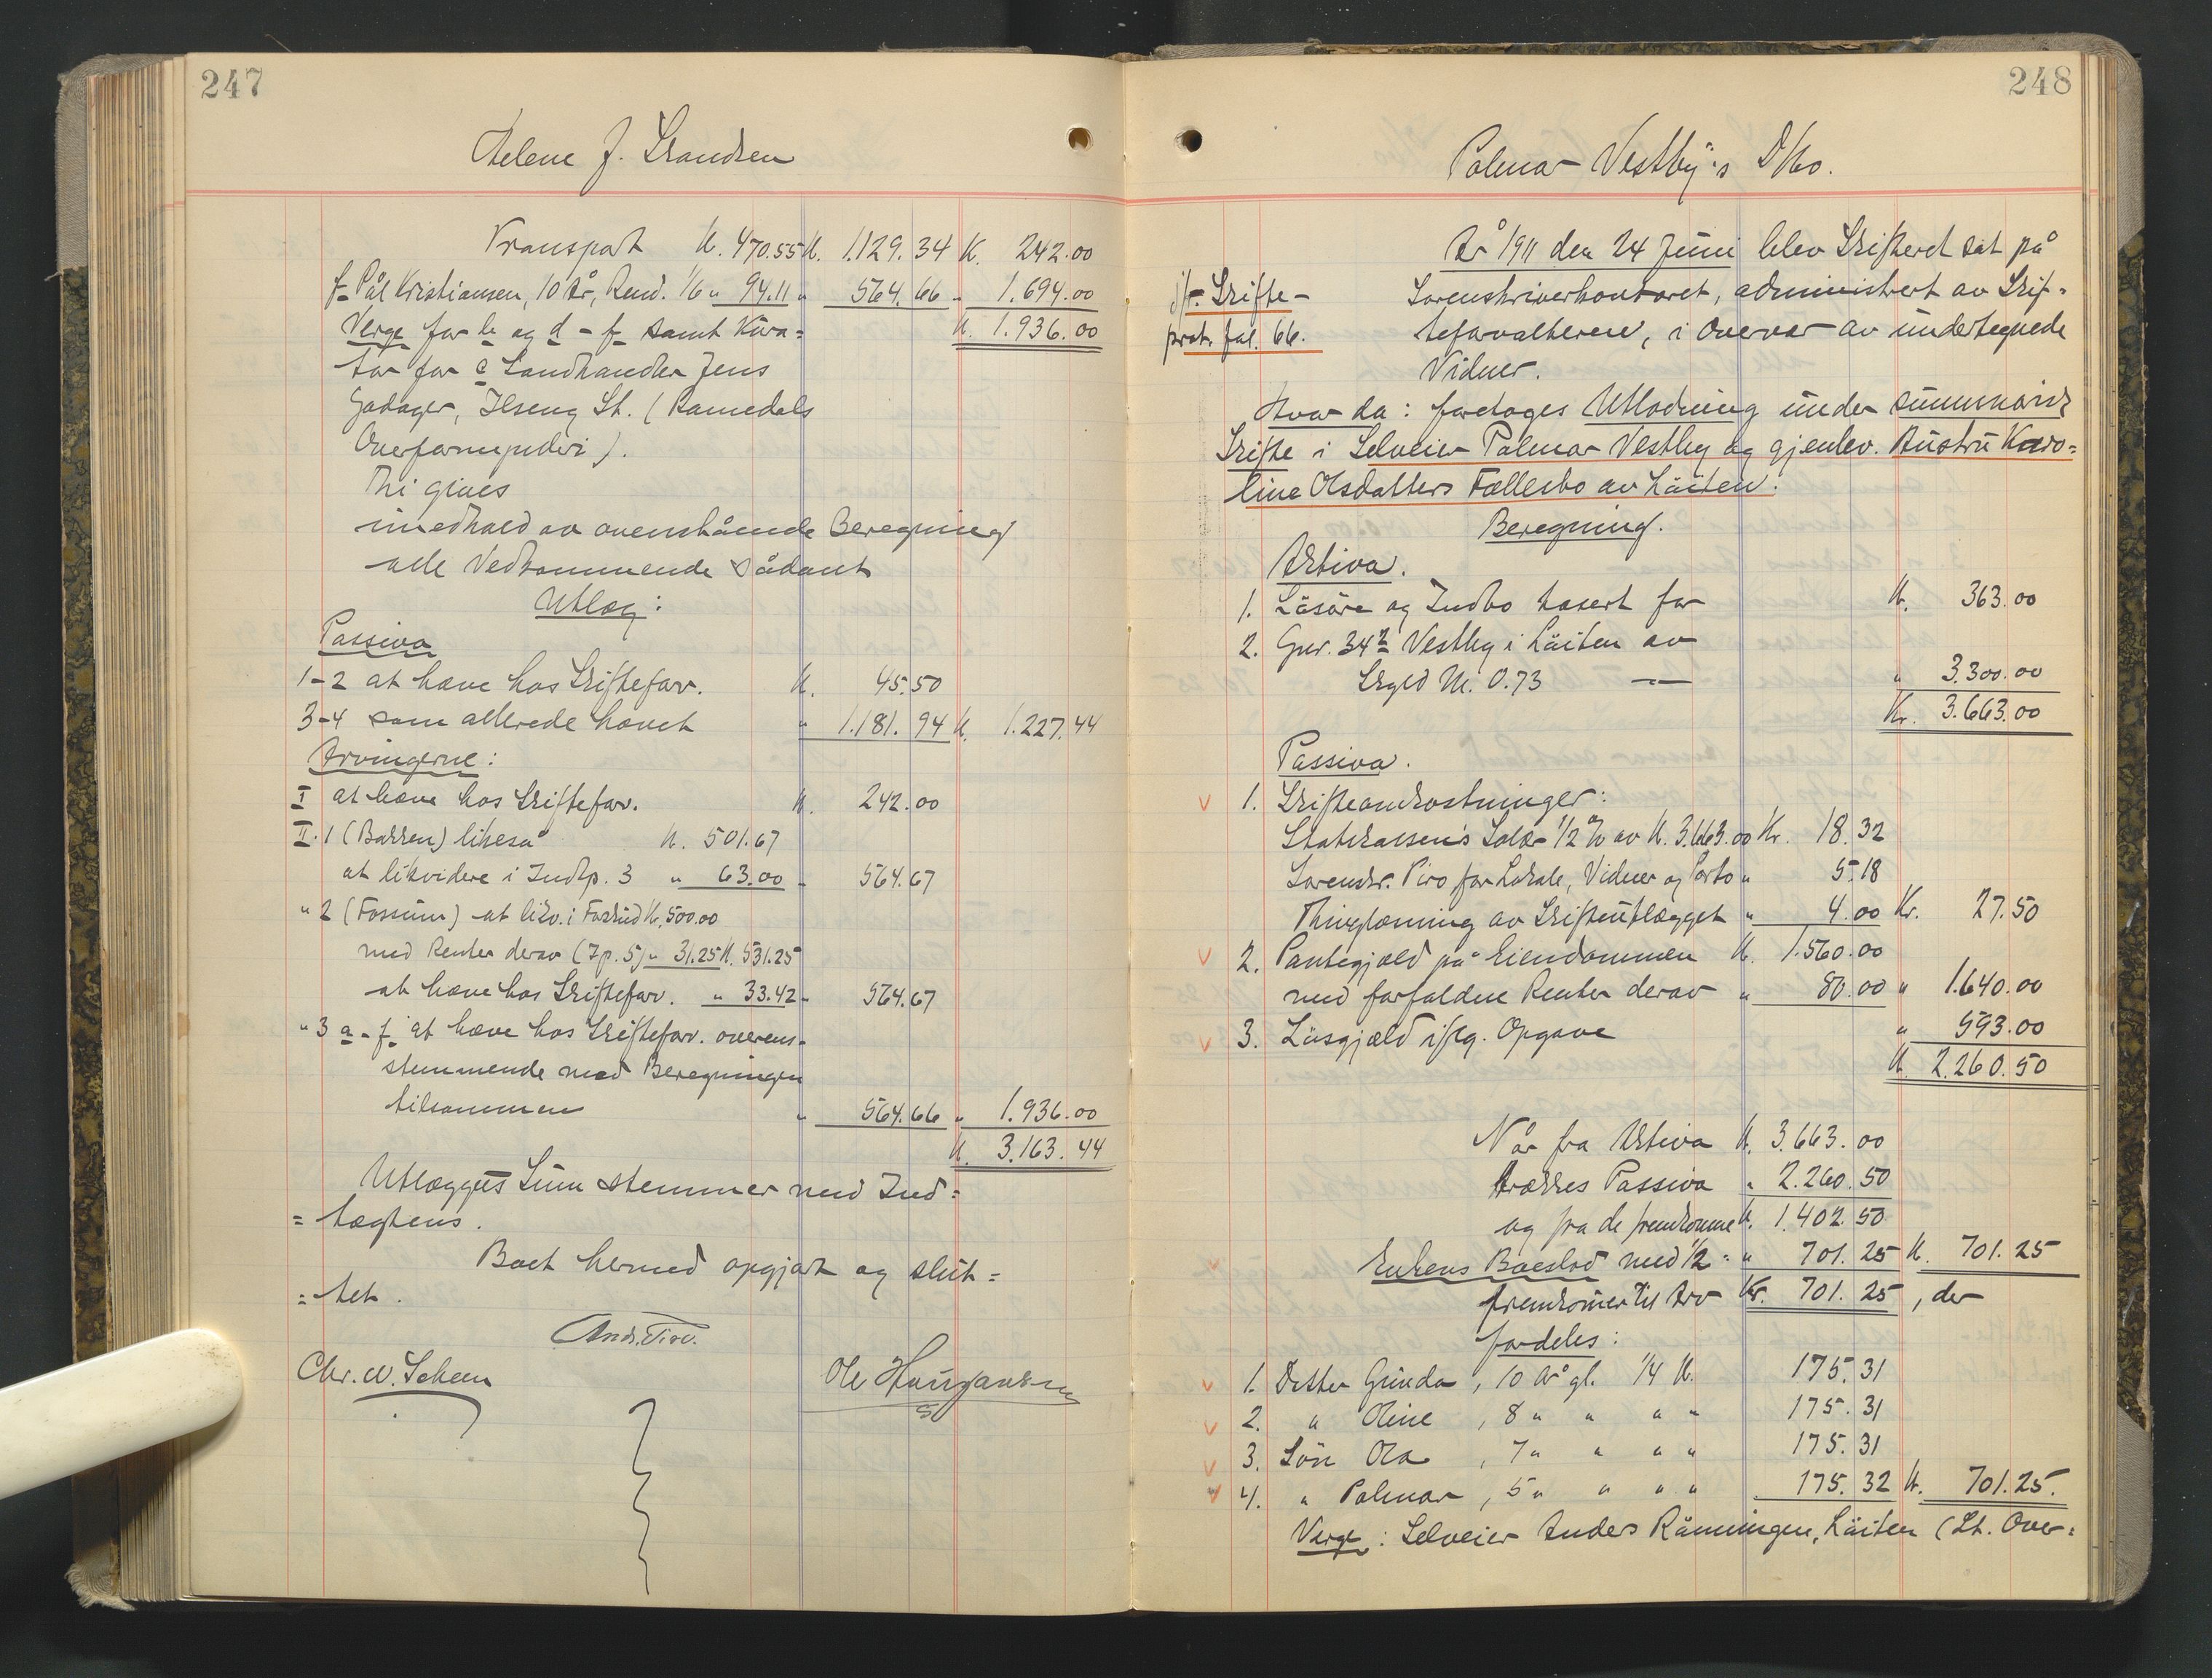 247
Helene J. Strandsen
Transport K. 470.55 K. 1.129.34 K. 242.00
f. Pål Kristiansen, 10 År, Rend. 1/6 " 94.11 " 564.66 " 1.694.00
Verge for b og d - f samt Kura= K. 1.936.00
tor for c Landhandler Jens
Gadager, Ilseng St. (Romedals
Overformynderi).
Thi gives
imedhald av ovenstående Beregning
alle Vedkommende sådant
Utlæg:
Passiva
1-2 at hæve hos Skiftefor. K. 45.50
3-4 som allerede hævet " 1.181.94 K. 1.227.44
Arvingerne:
I at hæve hos Skiftefor. K. 242.00
II. 1 (Bakken) likeså K. 501.67
at likvidere i Indtp. 3 " 63.00 " 564.67
" 2 (Fossum) at likv. i Forskud K. 500.00
med Renter derav (Ip. 5) " 31.25 K. 531.25
at hæve hos Skiftefor. " 33.42 " 564.67
" 3 a - f at hæve hos Skiftefor. overens-
stemmende med Beregningen
tilsammen " 564.66 " 1.936.00
K. 3.163.44
Utlæggets Sum stemmer med Ind=
=tægtens.
Boet hermed opgjort og slut=
=tet.
And. Piro.
Chr. W. Scheen Ole Haugansen
248
Palmar Vestby's D/bo.
År 1911 den 24 Juni blev Skifteret sat på
jfr. Skifte- Sorenskriverkontoret, administrert av Skif=
prot. fol. 66. teforvalteren, i Overvær av undertegnede
Vidner.
Hvor da: foretoges Utlodning under summarisk
Skifte i Selveier Palmar Vestby og gjenlev. Hustru Karo=
line Olsdatters Fællesbo av Løiten.
Beregning.
Aktiva.
1. Løsøre og Indbo taxert for K. 363.00
2. Gnr. 34 2 Vestby i Løiten av
Skyld M. 0.73 — " 3.300.00
Kr. 3.663.00
Passiva.
1. Skifteomkostninger:
Statskassen's Salær 1/2 % av K. 3.663.00 Kr. 18.32
Sorenskr. Piro for Lokale, Vidner og Porto " 5.18
Thinglæsning av Skifteutlægget " 4.00 Kr. 27.50
2. Pantegjæld på Eiendommen K. 1.560.00
med forfaldne Renter derav " 80.00 " 1.640.00
3. Løsgjæld iflg. Opgave " 593.00
K. 2.260.50
Når fra Aktiva K. 3.663.00
trækkes Passiva " 2.260.50
og fra de fremkomne K. 1.402.50
Enkens Boeslod med 1/2 = " 701.25 K. 701.25
fremkommer til Arv Kr. 701.25, der
fordeles:
1. Datter Gunda, 10 År gl. 1/4 K. 175.31
2. " Oline, 8 " " " " 175.31
3. Søn Ola, 7 " " " " 175.31
4. " Palmar, 5 " " " " 175.32 K. 701.25.
Verge: Selveier Anders Rønningen, Løiten (Lt. Over=